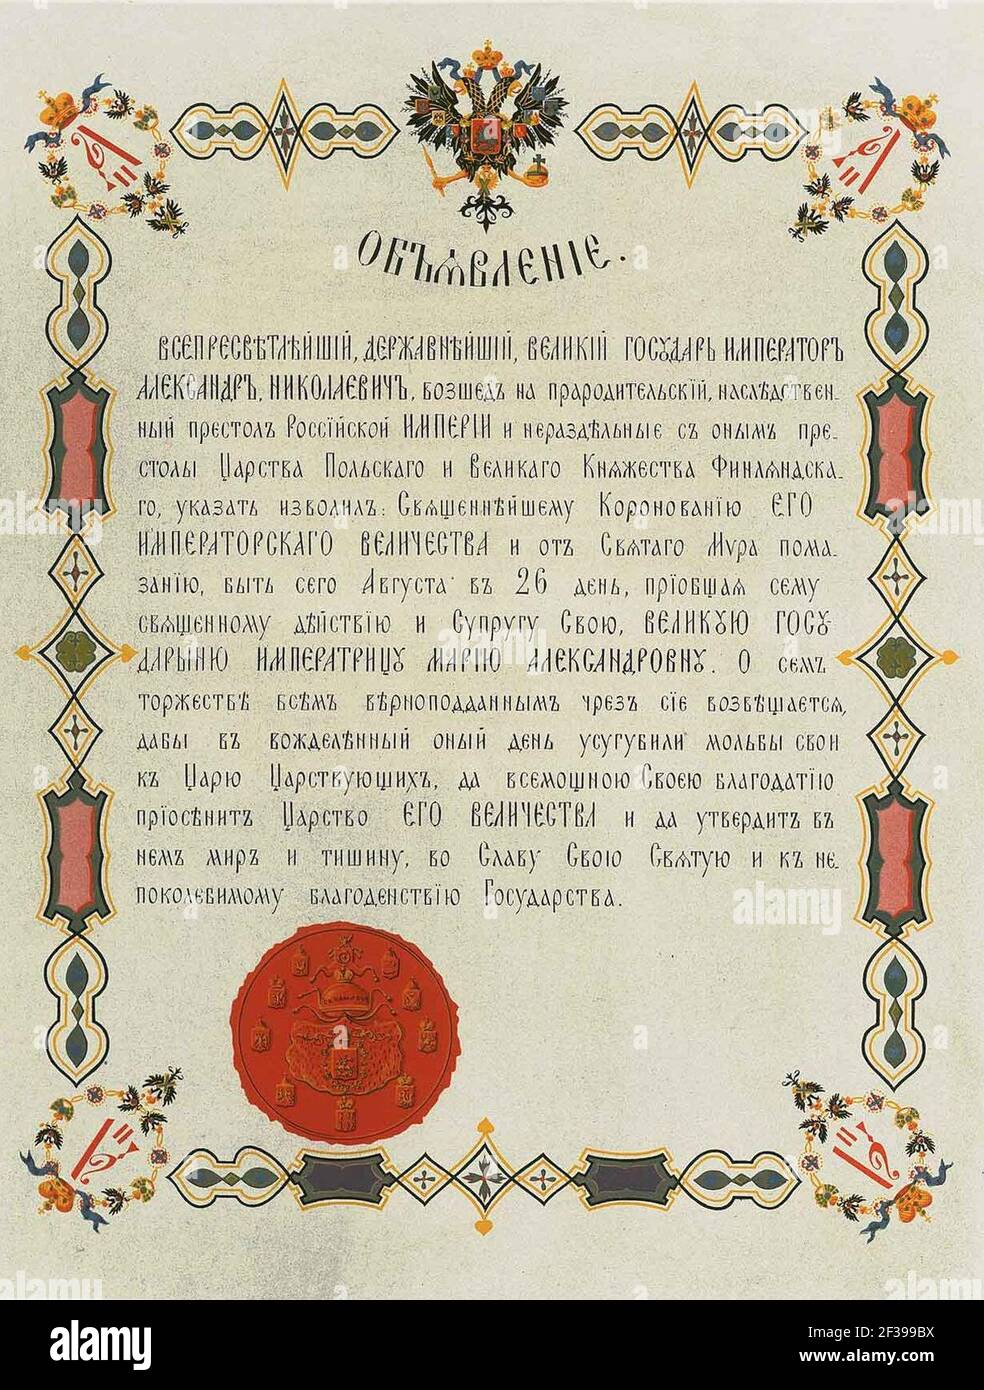 ОБЪѦВЛЕНІЕ.
ВСЕПРЕСВѢТЛѢЙШІЙ, ДЕРЖАВНѢЙШІЙ, ВЕЛИКІЙ ГОСУДАРЬ ИМПЕРАТОРЪ
АЛЕКСАНДРЪ НИКОЛАЕВИЧЪ, возшедъ на прародительскій, наслѣдствен-
ный престолъ Россійской ИМПЕРІИ и нераздѣльные съ онымъ пре-
столы Царства Польскаго и Великаго Княжества Финлѧндска-
го, указать изволилъ: Свѧщеннѣйшему Коронованію ЕГО
ИМПЕРАТОРСКАГО ВЕЛИЧЕСТВА и отъ Свѧтаго Мѵра пома-
занію, быть сего Августа въ 26 день, пріобщаѧ сему
свѧщенному дѣйствію и Супругу Свою, ВЕЛИКУЮ ГОСУ-
ДАРЫНЮ ИМПЕРАТРИЦУ МАРІЮ АЛЕКСАНДРОВНУ. О семъ
торжествѣ всѣмъ вѣрноподданнымъ чрезъ сіе возвѣщаетсѧ,
дабы въ вожделѣнный оный день усугубили мольбы свои
къ Царю Царствующихъ, да всемощною Своею благодатію
пріосѣнитъ Царство ЕГО ВЕЛИЧЕСТВА и да утвердитъ въ
немъ миръ и тишину, во Славу Свою Свѧтую и къ не-
поколебимому благоденствію Государства.
alamy
Image ID: 2F399BX
www.alamy.com